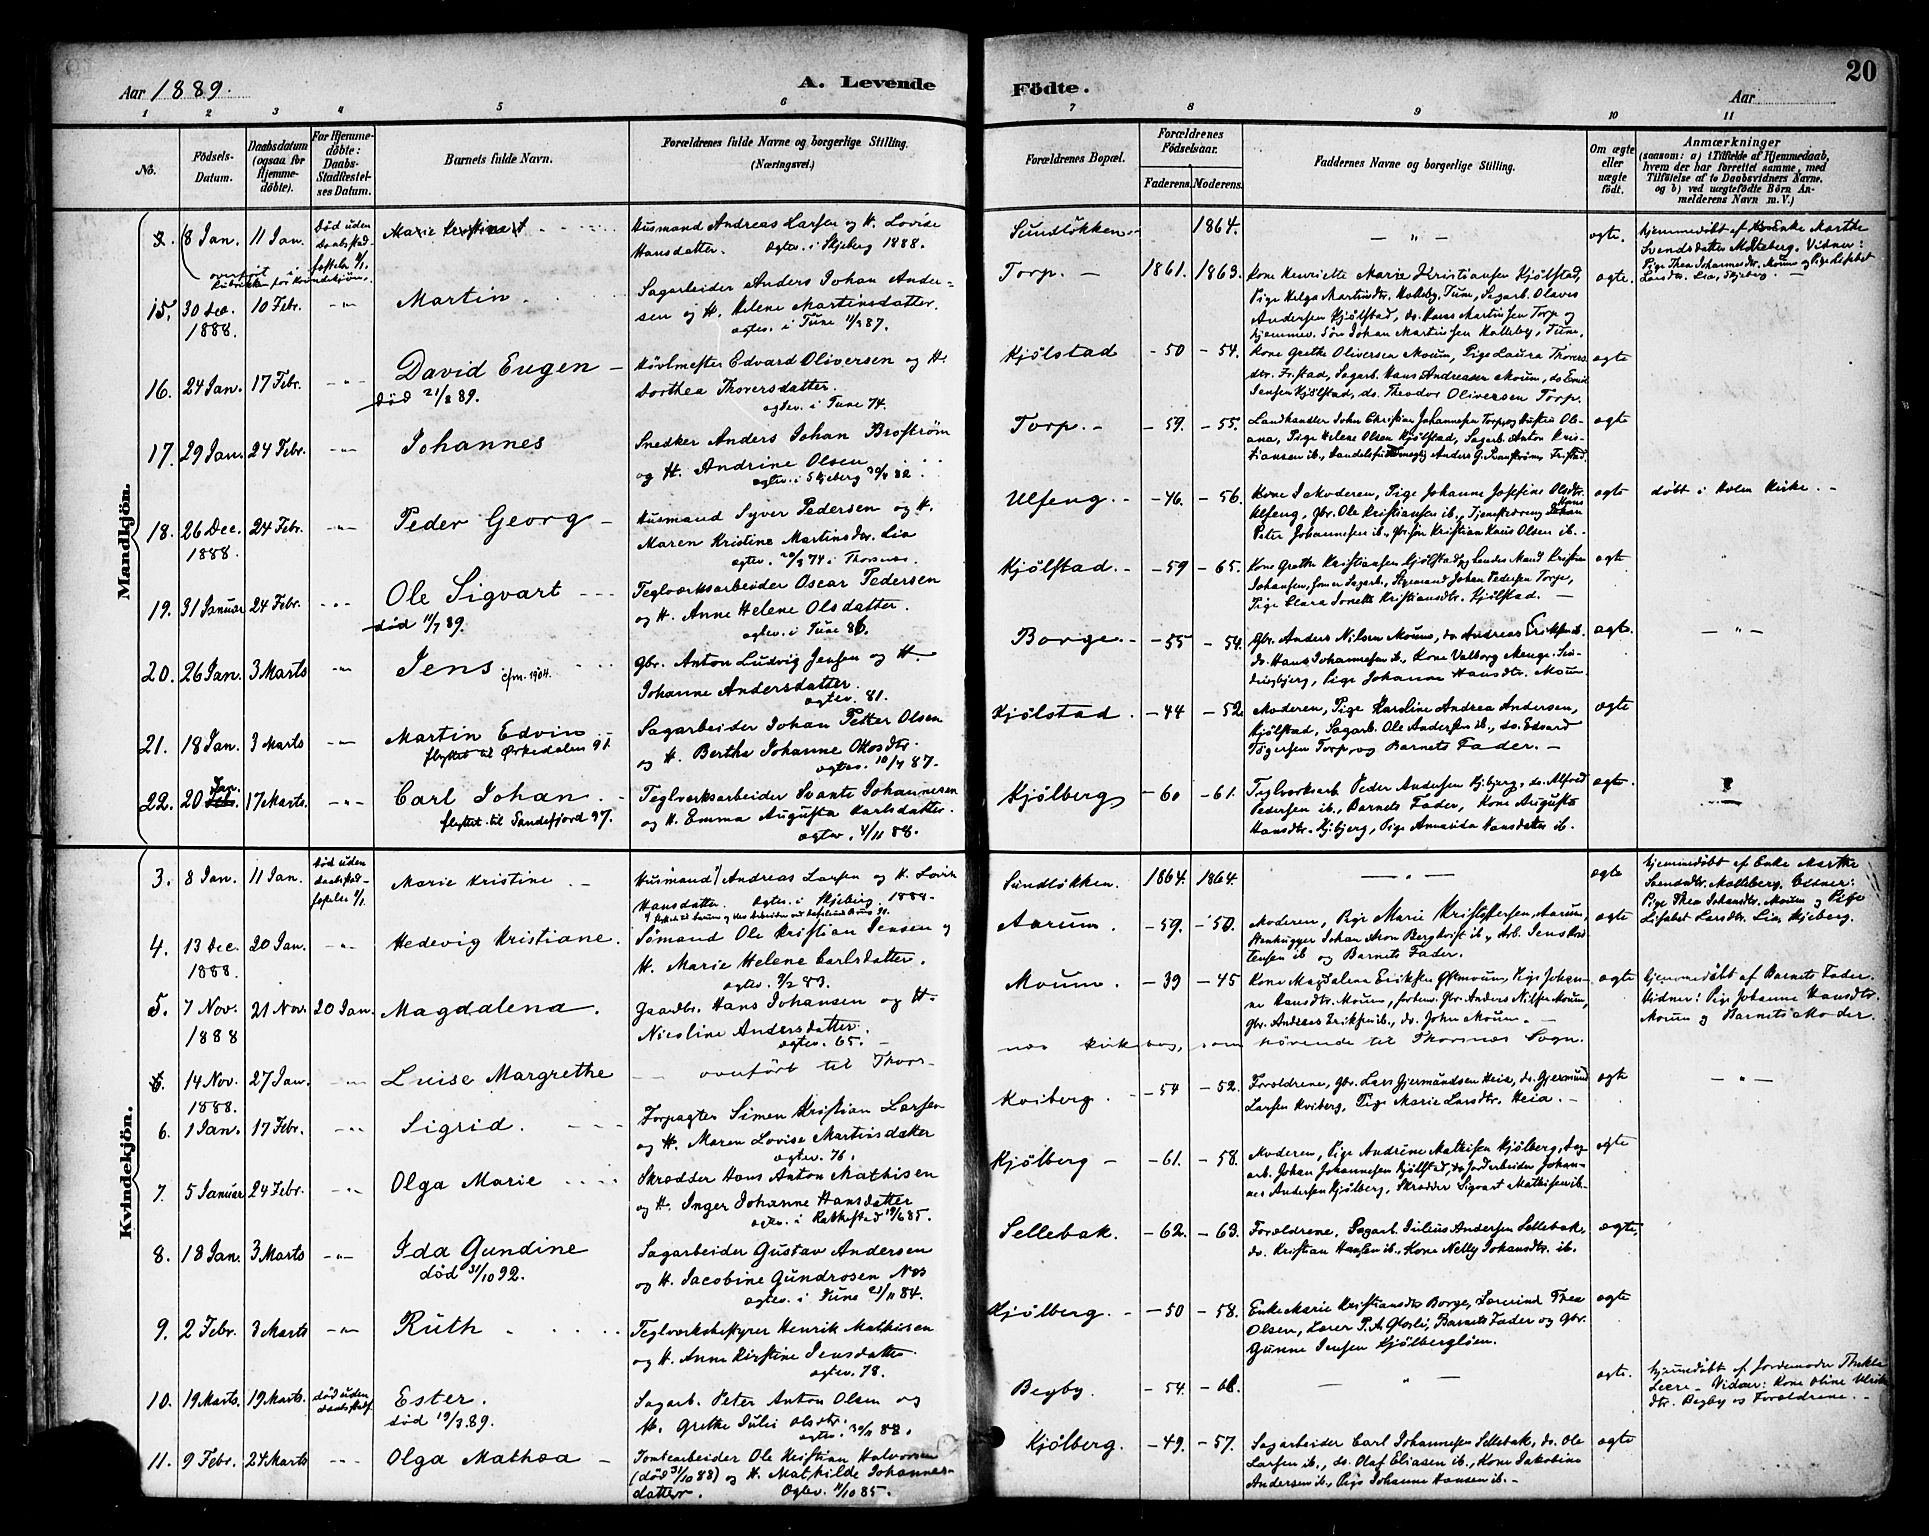 Aar 1889.
A. Levende
Födte.
20
Aar
1 2 3 4 5 6 7 8 9 10 11
No.
Födsels-Datum.
Daabsdatum (ogsaa for Hjemmedøbte).
For Hjemmedøbte: Daabs-Stadfæstelses Datum.
Barnets fulde Navn.
Forældrenes fulde Navne og borgerlige Stilling.
(Næringsvei.)
Forældrenes Bopæl.
Forældrenes Födselsaar.
Faderens. Moderens.
Faddernes Navne og borgerlige Stilling.
Om ægte eller uægte födt.
Anmærkninger
(saasom: a) i Tilfælde af Hjemmedaab, hvem der har forrettet samme, med Tilföielse af to Daabsvidners Navne, og b) ved uægtefödte Börn Anmelderens Navn m.V.)
Mandkjön.
8 Jan. 11 Jan. Død uden daabsstadfæstelse 9/1. Marie Kristine
Husmand Andreas Larsen og H. Lovise
Hansdatter. Ægtev. i Skjeberg 1888.
Sundløkken 1864. — " — ægte.
Hjemmedøbt af Enke Marthe
Svendsdatter Molteberg. Vidner:
overført i Rubrikken for Kvindekjøn.
15. 30 Dec. 1888. 10 Febr. — " — Martin
Sagarbeider Anders Johan Andersen
og H. Helene Martinsdatter.
ægtev. i Tune 11/3 87.
Torp. — 1861. 1863.
Kone Henriette Marie Kristiansen Kjølstad,
Pige Helga Martinsdtr. Halleby, Tune, Sagarb. Olaves
Andersen Kjølstad, do. Hans Martinsen Torp og
hjemmev. Søn Johan Martinsen Halleby, Tune.
ægte.
16. 24 Jan. 17 Febr. — " — David Eugen
død 21/8 89.
Høvlmester Edvard Oliversen og H.
Dorthea Thoversdatter.
ægtev. i Tune 74.
Kjølstad — 50 — 54.
Kone Grethe Oliversen Moum, Pige Laura Thovers
dtr. Fristad, Sagarb. Hans Andreasen Moum, do Emil
Jensen Kjølstad, do. Theodor Oliversen Torp.
ægte
17. 29 Jan. 24 Febr. — " — Johannes
Snedker Anders Johan Broström
og H. Andrine Olsen
ægtev. i Skjeberg 30/4 82.
Torp. — 59. — 55.
Landhandler John Christian Johannesen Torp og Hustru Oleana,
Pige Helene Olsen Kjølstad, Sagarb. Anton Kristiansen
ib.
ægte
18. 26 Dec. 1888. 24 Febr. — " — Peder Georg —
Husmand Syver Pedersen og H.
Maren Kristine Martinsdtr. Lia
ægtev. 20/3 74 i Thorsnæs.
Ulfeng. — 46. — 56.
Kone I Moderen, Pige Johanne Josefine Olsdtr.
Ulfeng, Gbr. Ole Kristiansen ib., Tjenestedreng Hans
Peter Johannesen ib., Gbrsøn Kristian Hans Olsen ib.
ægte
døbt i Holm Kirke. —
19. 31 Januar 24 Febr. — " — Ole Sigvart
død 11/7 89.
Teglværksarbeider Oscar Pedersen
og H. Anne Helene Olsdatter.
ægtev. i Tune 86.
Kjølstad. — 59 — 65.
Kone Grethe Kristiansen Kjølstad og hendes Mand Kristian
Johansen, former Sagarb., Styrmand Johan Pedersen Torp,
Pige Clara Jonette Kristiansdtr. Kjølstad. —
ægte
20. 26 Jan. 3 Marts — " — Jens cfm. 1904.
Gbr. Anton Ludvig Jensen og H.
Johanne Andersdatter.
ægtev. 81.
Borge. — 55 — 54.
Gbr. Anders Nilsen Moum, do Andreas Eriksen ib.
do. Hans Johannesen ib., Kone Valborg
Pige Johanne Hansdtr. Moum
ægte.
— " —
21. 18 Jan. 3 Marts — " — Martin Edvin
flyttet til Ørkedalen 91.
Sagarbeider Johan Petter Olsen
og H. Bertha Johanne
ægtev. 10/4 87.
Kjølstad. — 44 — 52.
Moderen, Pige Karoline Andrea Andersen,
Kjølstad, Sagarb. Ole Andersen ib., do. Edvard
Torp, og Barnets Fader. —
ægte
22. 20 Jan. 17 Marts. — " — Carl Johan.
flyttet til Sandefjord 97.
Teglværksarbeider Svante Johannesen
og H. Emma Augusta Carlsdatter.
ægtev. 4/11 88.
Kjølberg — 60 — 61.
Teglværksarb. Peder Andersen Kjbjerg, do. Alfred
Pedersen ib., Barnets Fader, Kone Augusta
Hansdtr. Kjbjerg, Pige Amanda Hansdatter ib.
ægte.
Kvindekjön.
3. 8 Jan. 11 Jan. Død uden daabsstadfæstelse 9/1. Marie Kristine —
Husmand Andreas Larsen og H. Lovise
Hansdatter. Ægtev. i Skjeberg 1888.
Sundløkken. 1864. 1864. — " — ægte
Hjemmedøbt af Enke Marthe
Svendsdtr. Molteberg. Vidner:
Pige Thea Johansdtr. Moum og Pige
Lisabet Larsdtr. Lia, Skjeberg.
4. 13 Dec. 1888. 20 Jan. — " — Hedevig Kristiane.
Sømand Ole Kristian Jensen og
H. Marie Helene Carlsdatter.
ægtev. 9/2 83.
Aarum. — 59. — 50.
Moderen, Pige Marie Kristoffersen, Aarum,
Stenhugger Johan Aron Bergkvist ib., Arb. Jens Kristensen
ib og Barnets Fader.
ægte
5. 7 Nov. 1888 21 Nov. 20 Jan. Magdalena.
Gaardbr. Hans Johansen og H.
Nicoline Andersdatter.
ægtev. 65. —
Moum. — 39 — 45
Kone Magdalena Eriksen Østmoum, Pige Johanne
Hansdtr. Moum, forhenv. Gbr. Anders Nilsen Moum,
Gbr. Andreas Eriksen ib., do. John Moum. —
ægte
Hjemmedøbt af Barnets Fader.
Vidner: Pige Johanne Hansdtr.
Moum og Barnets Moder.
6. 14 Nov. 1888. 27 Jan. — " — Luise Margrethe
— overført til Thorsnæs
kirkebog, som hørende til Thorsnæs Sogn.
6. 1 Jan. 17 Febr. — " — Sigrid.
Forpagter Simen Kristian Larsen
og H. Maren Lovise Martinsdatter
ægtev. 76.
Kviberg. — 54 — 52.
Forældrene, Gbr. Lars Gjermundsen Heia, do. Gjermund
Larsen Kviberg, Pige Marie Larsdtr. Heia. —
ægte — " —
7. 5 Januar 24 Febr. — " — Olga Marie
Skrædder Hans Anton Mathisen
og H. Inger Johanne Hansdatter
ægtev. i Rakkestad 19/6 85.
Kjølberg — — 61. — 58.
Moderen, Pige Andrine Mathisen Kjølberg, Sagarb.
Johan Johannesen Kjølstad, do Jordarbeider Johannes
Andersen Kjølberg, Skrædder Sigvart Mathisen ib.
ægte
8. 18 Jan. 3 Marts — " — Ida Gundine
død 31/10 92.
Sagarbeider Gustav Andersen
og H. Jacobine Gundrosen Næs
ægtev. i Tune 21/11 84.
Sellebak. — 62. — 63.
Forældrene, Sagarb. Julius Andersen Sellebak,
do. Kristian Hansen ib., Kone Nelly Johansdtr. ib.
ægte,
9. 2 Febr. 3 Marts — " — Ruth
Teglværksbestyrer Henrik Mathisen
og H. Anne Kirstine Jensdatter
ægtev. 78.
Kjølberg. — 50 — 58.
Enke Marie Kristiansdtr Borge, Lærerinde Thea
Olsen, Lærer P. A. Gloslie, Barnets Fader og Gbr.
Gunne Jensen Kjølbergløkken.
ægte
10. 19 Marts. 19 Marts. død uden daabsstadf. Ester.
død 19/3 89.
Sagarb. Peter Anton Olsen og
H. Grethe Julie Olsdtr.
ægtev. 30/11 88.
Begby. — 54. — — " — ægte.
Hjemmedøbt af Jordemoder Thekla
Leere. Vidner: Kone Oline
Begby og Forældrene. —
11. 9 Febr. 24 Marts — " — Olga Mathea —
Tomtearbeider Ole Kristian Halvorsen
(død 3/10 88) og H. Mathilde Johannesdatter.
Ægtev. 11/10 85.
Kjølberg. — 49. — 57.
Sagarbeider Carl Johannesen Sellebak, do. Ole
Larsen ib., do. Olaf Eliasen ib., Kone Jakobine
Andersen ib., Pige Johanne Hansen ib. —
ægte